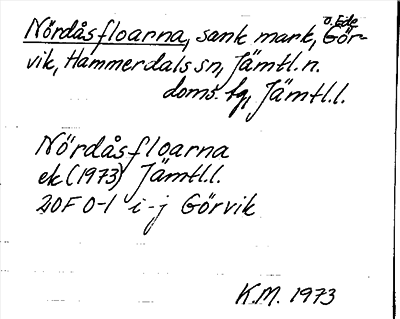 ö. Ede
Nördåsfloarna, sank mark, Gör-
vik, Hammerdals sn, Jämtl. n.
doms. fg, Jämtl. l.
Nördåsfloarna
ek (1973) Jämtl. l.
20F 0-1 i-j Görvik
K.M. 1973